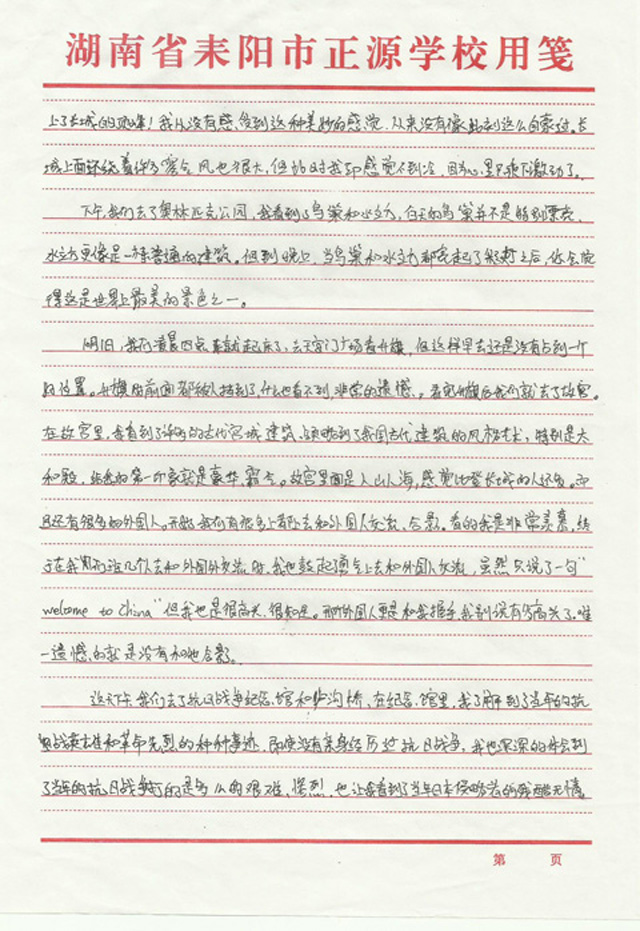 湖南省耒阳市正源学校用笺
上了长城的顶峰！我从没有感受到这种美妙的感觉，从来没有像此刻这么自豪过。长
城上面环绕着许多雾气，风也很大，但此时我却感觉不到冷，因为心里只顾下激动了。
下午，我们去了奥林匹克公园，我看到了鸟巢和水立方，白天的鸟巢并不是特别漂亮，
水立方更像是一栋普通的建筑。但到晚上，当鸟巢和水立方都亮起了彩灯之后，你会觉
得这是世界上最美的景色之一。
明日，我们清晨四点来就起床了，去天安门广场看升旗，但这样早去还是没有占到一个
好位置。升旗时前面都被人挡到了什么也看不到，非常的遗憾。看完升旗后我们就去了故宫。
在故宫里，我看到了许多的古代宫城建筑，领略到了我国古代建筑的风格艺术，特别是太
和殿，给我的第一印象就是豪华，霸气。故宫里面是人山人海，感觉比登长城的人还多。而
且还有很多的外国人。开始我们有很多上前去和外国人交流、合影。看的我是非常羡慕，终
于在我们班几个人去和外国人交流时，我也鼓起勇气上去和外国人交流，虽然只说了一句“
welcome to China”但我也是很高兴，很知足。那外国人更是和我握手，我别说有多高兴了。唯
一遗憾的就是没有和她合影。
这天下午我们去了抗日战争纪念馆和卢沟桥、在纪念馆里，我了解到了当年的抗
战英雄和革命先烈的种种事迹，即使没有亲身经历过抗日战争，我也深深的体会到
了当年的抗日战争打的是多么的艰难、惨烈，也让我看到了当年日本侵略者的残酷无情。
第 页